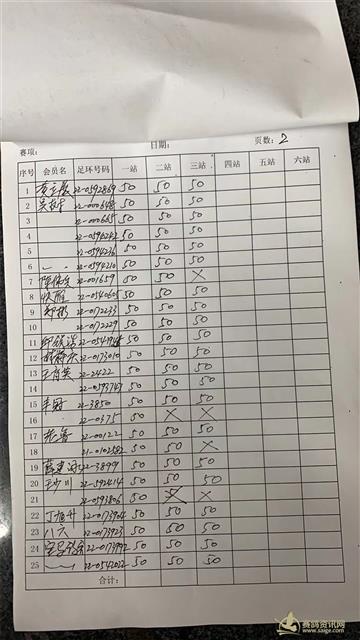 赛项： 日期： 页数：2
序号 会员名 足环号码 一站 二站 三站 四站 五站 六站
1 22-0592869 50 50 50
2 吴树 22-000648 50 50 50
3 22-000665 50 50 50
4 22-0592242 50 50 50
5 22-0594236 50 50 50
6 22-0594210 50 50 50
7 22-001659 50 50 ×
8 22-0540605 50 50 50
9 郑彬 22-0172233 50 50 50
10 22-0172229 50 50 50
11 50 50 50
12 22-0173010 50 50 50
13 王育英 22-2422 50 50 50
14 22-0593747 50 50 50
15 22-3850 50 50 50
16 22-0375 50 × ×
17 22-00122 50 50 50
18 21-0102582 50 50 ×
19 22-3899 50 50 50
20 22-592414 50 50 50
21 22-0593806 50 × ×
22 丁旭升 22-0173904 50 50 50
23 八六 22-0173923 50 50 50
24 22-0173992 50 50 50
25 22-0542022 50 50 50
合计：
赛鸽资讯网
www.saige.com